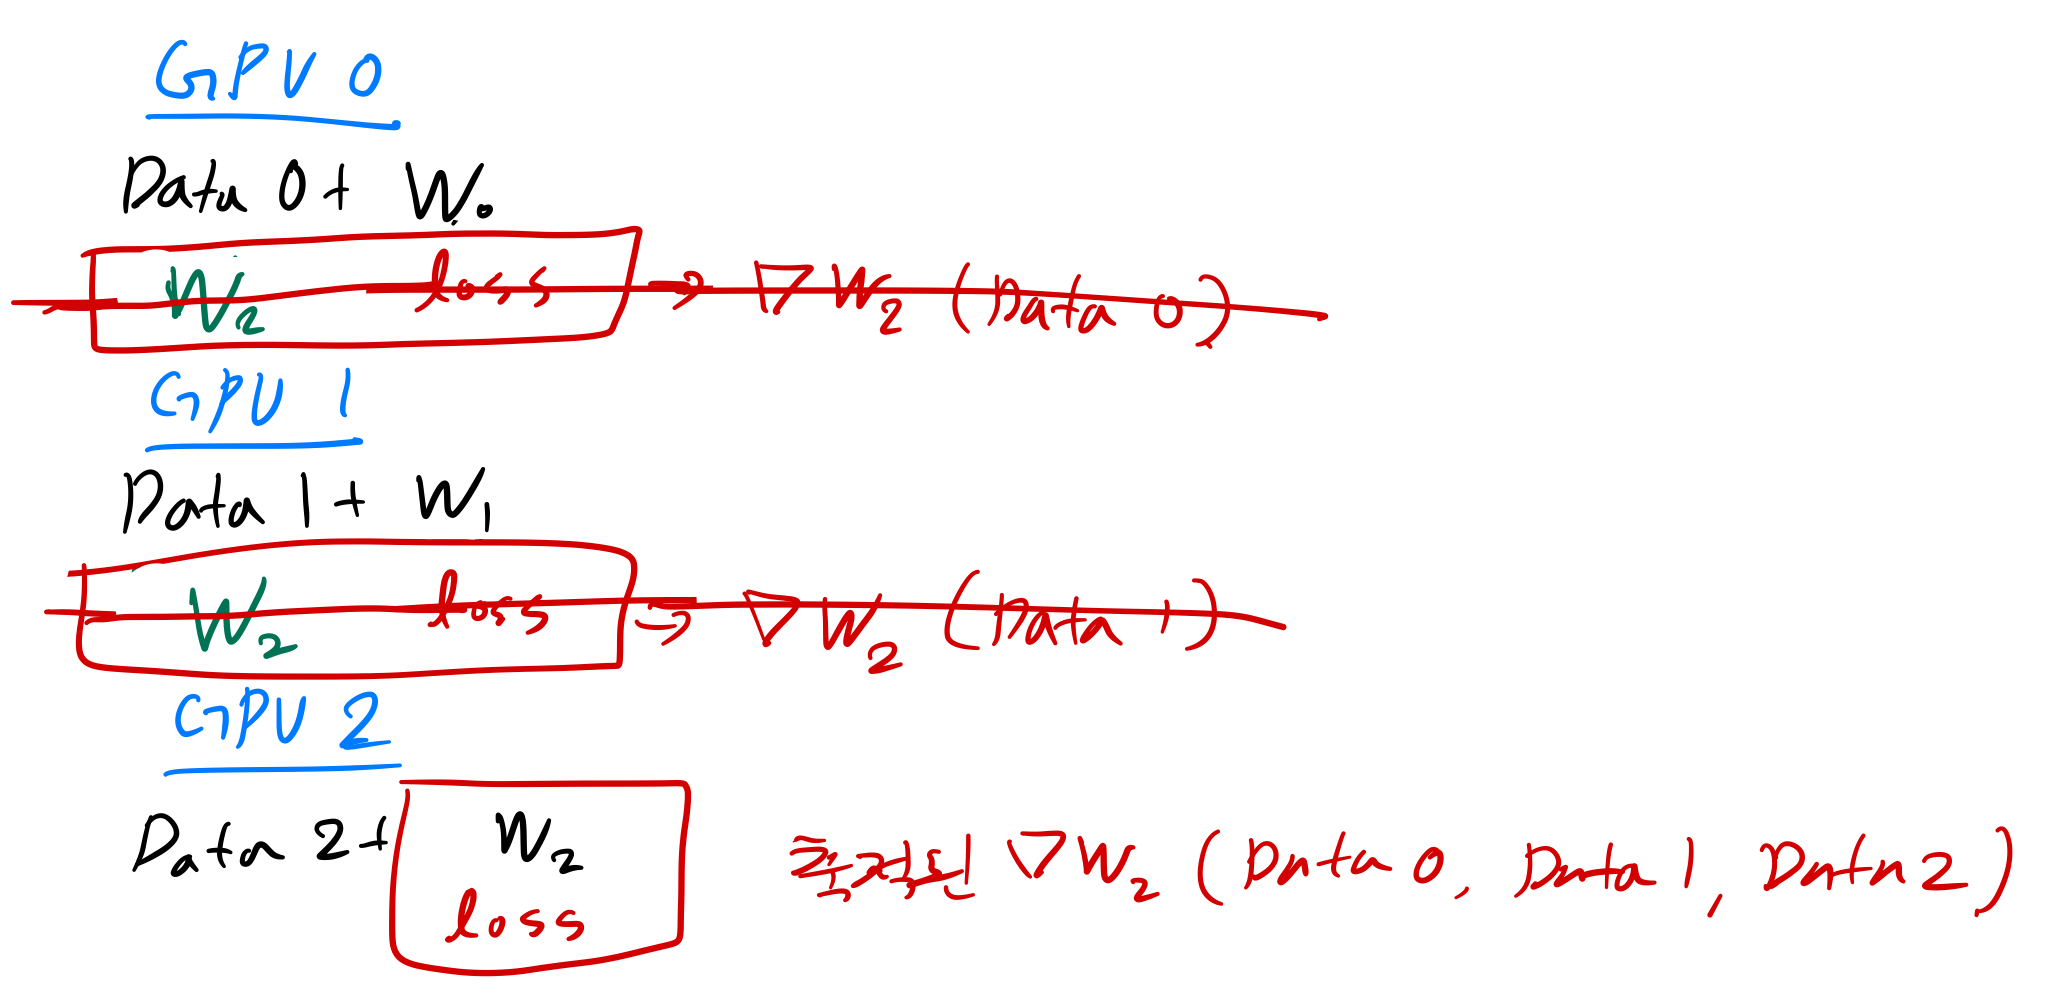 GPU 0
Data 0 + W₀
W₂ loss → ∇W₂ (Data 0)
GPU 1
Data 1 + W₁
W₂ loss → ∇W₂ (Data 1)
GPU 2
Data 2 + W₂
loss
축적된 ∇W₂ (Data 0, Data 1, Data 2)